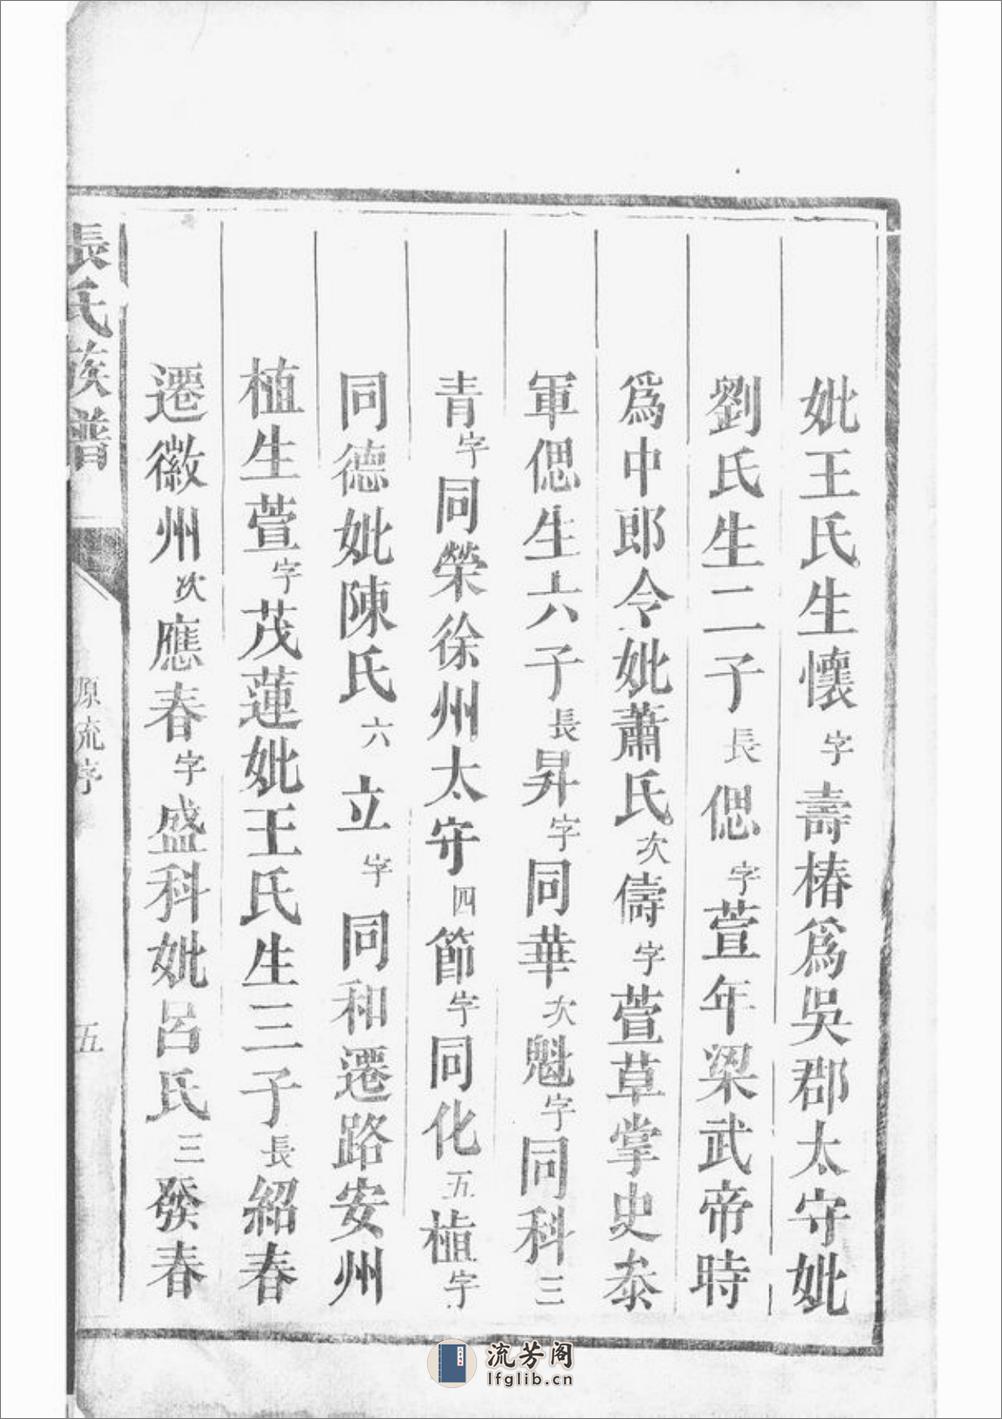 妣王氏生懷字壽椿爲吳郡太守妣
劉氏生二子長偲字萱年梁武帝時
爲中郎令妣蕭氏次儔字萱草掌史泰
軍偲生六子長昇字同華次魁字同科三
青字同榮徐州太守四節字同化五植字
同德妣陳氏六立字同和遷路安州
植生萱字茂蓮妣王氏生三子長紹春
遷徽州次應春字盛科妣呂氏三發春
張氏族譜
源流序
五
流芳阁
lfglib.cn